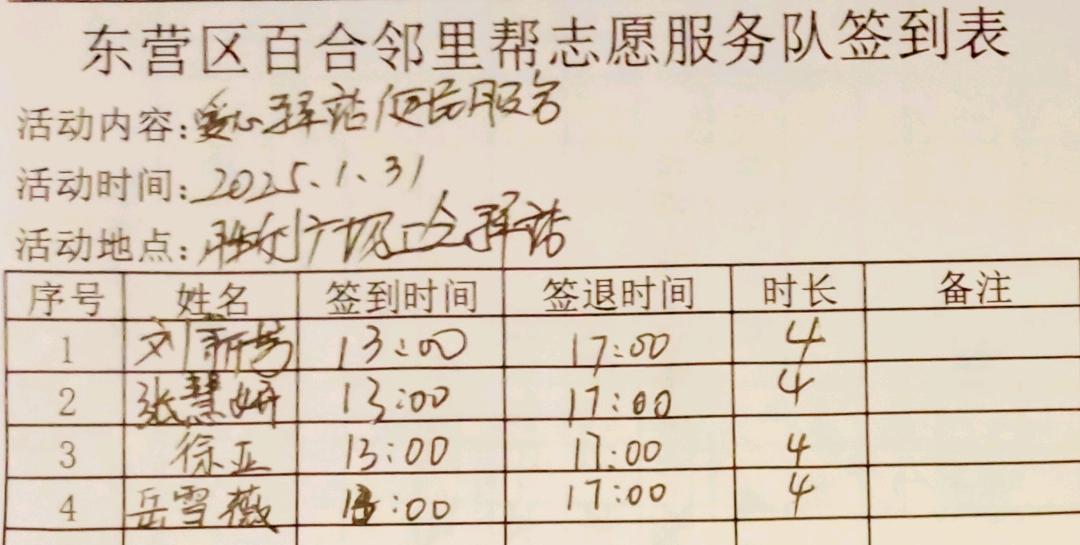 东营区百合邻里帮志愿服务队签到表
活动内容:爱心驿站便民服务
活动时间:2025.1.31
活动地点:胜利广场 驿站
序号 姓名 签到时间 签退时间 时长 备注
1 刘新芳 13:00 17:00 4
2 张慧妍 13:00 17:00 4
3 徐亚 13:00 17:00 4
4 岳雪薇 13:00 17:00 4